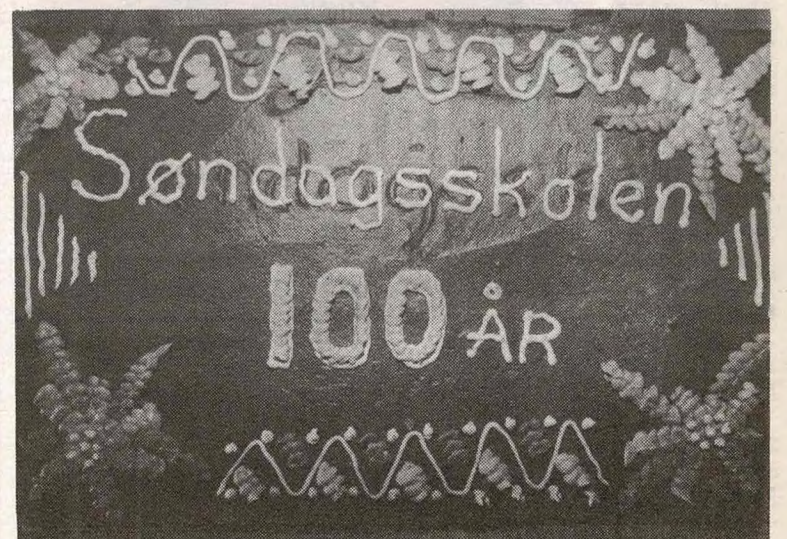 Søndagsskolen
100 ÅR